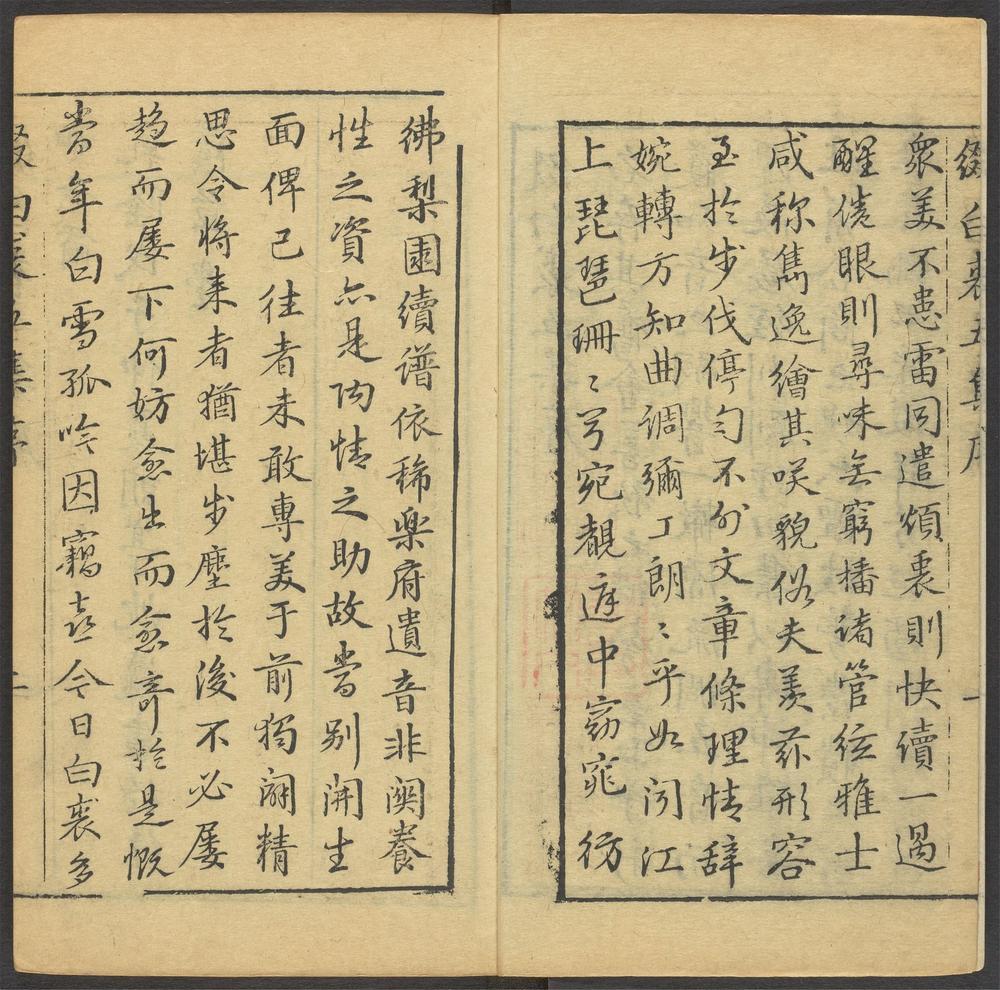 綴白裘五集序 一
衆美不患雷同遣煩裏則快續一過
醒倦眼則尋味無窮播諸管絃雅士
咸称雋逸繪其咲貌俗夫羨茲形容
至於步伐停匀不外文章條理情辞
婉轉方知曲調彌工朗〻乎如闻江
上琵琶珊〻兮宛覩遊中窈窕彷
彿梨園續谱依稀楽府遺音非関養
性之資亦是陶情之助故當别開生
面俾已往者未敢專美于前獨闢精
思令将来者猶堪步塵於後不必屡
趋而屡下何妨愈出而愈奇於是慨
當年白雪孤吟因竊喜今日白裘多
綴白裘五集序 二